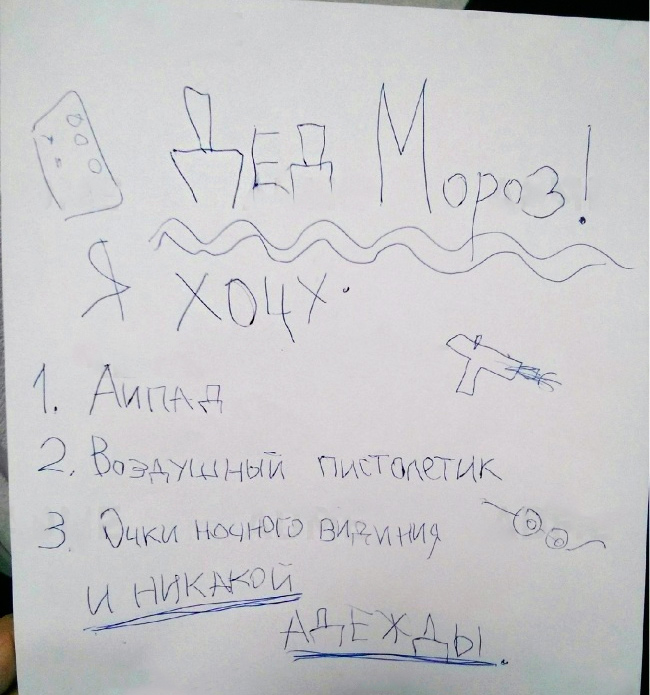 Дед Мороз!
Я хочу.
1. Аипад
2. Воздушный пистолетик
3. Очки ночного видиния
и никакой
адежды.